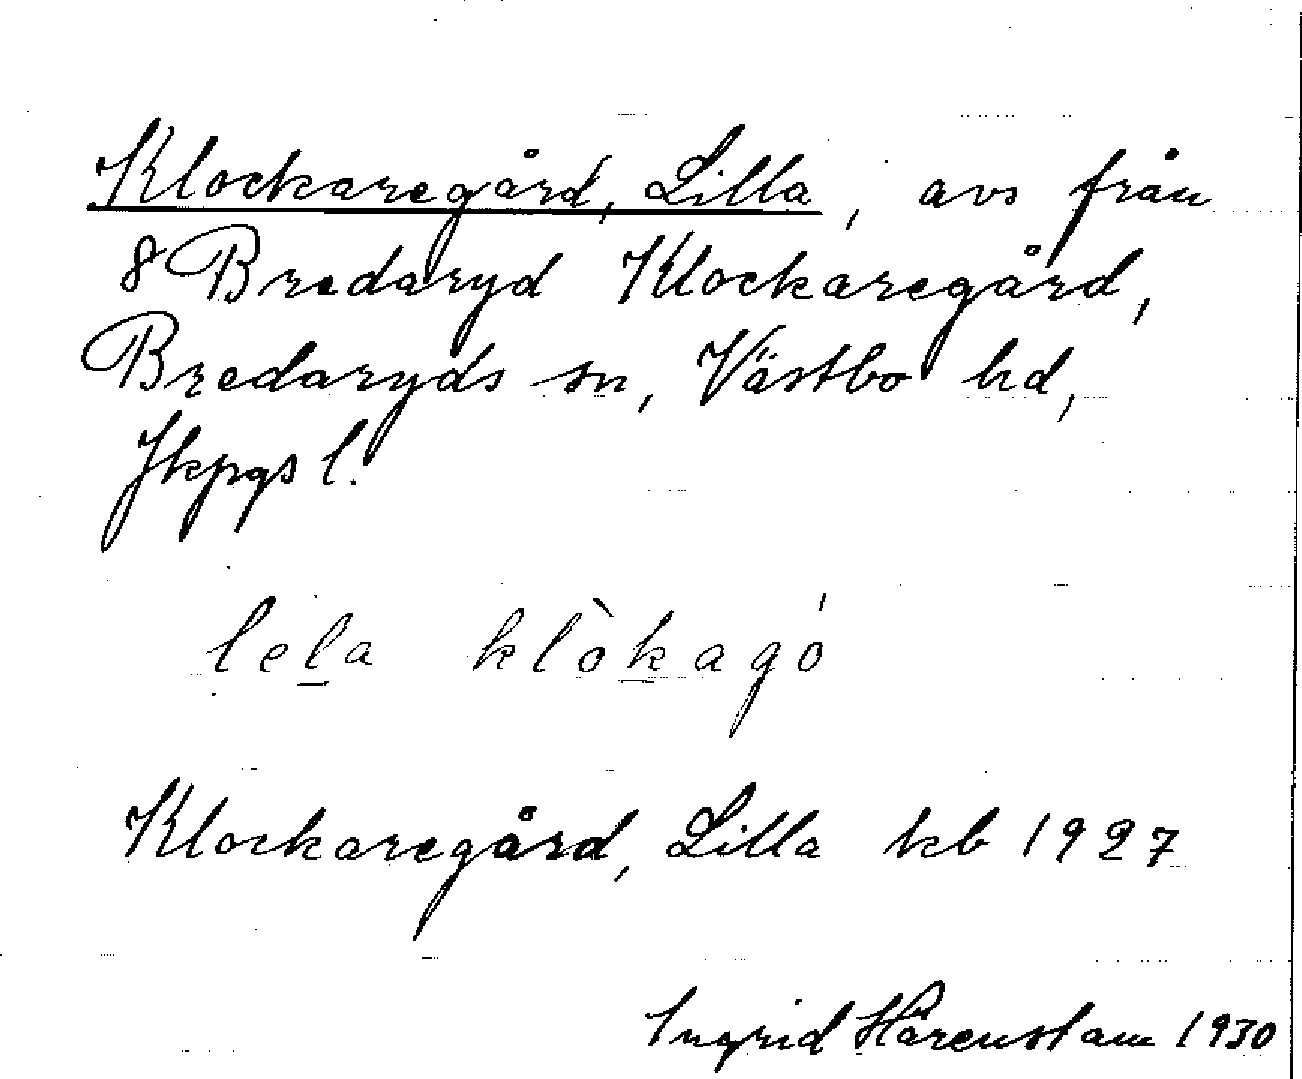 Klockaregård, Lilla, avs från
8 Bredaryd Klockaregård,
Bredaryds sn, Västbo hd,
Jkpgs l.
lela klòkagó
Klockaregård, Lilla kb 1927
Ingrid Härenstam 1930